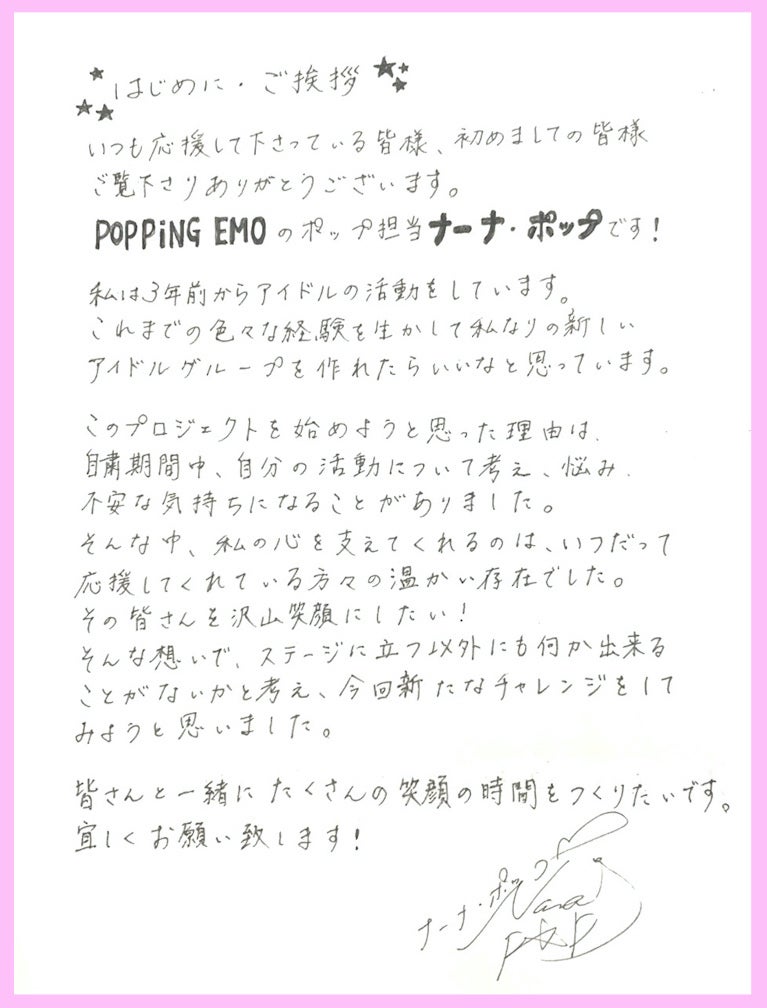 はじめに・ご挨拶
いつも応援して下さっている皆様、初めましての皆様
ご覧下さりありがとうございます。
POPPiNG EMOのポップ担当ナーナ・ポップです!
私は3年前からアイドルの活動をしています。
これまでの色々な経験を生かして私なりの新しい
アイドルグループを作れたらいいなと思っています。
このプロジェクトを始めようと思った理由は、
自粛期間中、自分の活動について考え、悩み、
不安な気持ちになることがありました。
そんな中、私の心を支えてくれるのは、いつだって
応援してくれている方々の温かい存在でした。
その皆さんを沢山笑顔にしたい!
そんな想いで、ステージに立つ以外にも何か出来る
ことがないかと考え、今回新たなチャレンジをして
みようと思いました。
皆さんと一緒にたくさんの笑顔の時間をつくりたいです。
宜しくお願い致します!
ナーナ・ポップ